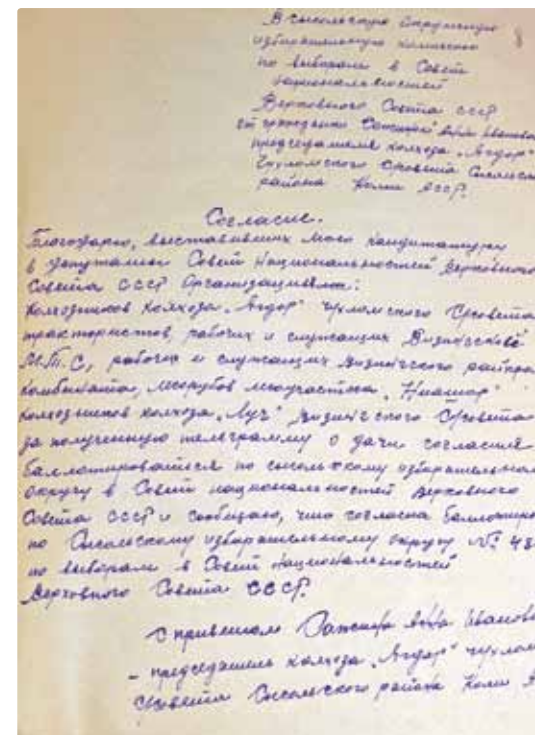 В Сысольскую Окружную 8
избирательную комиссию
по выборам в Совет
национальностей
Верховного Совета СССР
от гражданки
председателя колхоза „Агдор"
Чухломского С/совета
района Коми АССР.
Согласие.
Благодарю, выставивших мою кандидатуру
в депутаты Совет Национальностей Верховного
Совета СССР Организациям:
колхозников колхоза „Агдор" Чухломского С/совета
трактористов, рабочих и служащих Визингской
М.Т.С, рабочих и служащих Визингского райпром
комбината, лесорубов лесоучастка
колхозников колхоза „Луч" Визингского С/совета
за полученную телеграмму о дачи согласия
баллотироваться по сысольскому избирательном
округу в Совет национальностей Верховного
Совета СССР и сообщаю, что согласна баллотиро
по Сысольскому избирательному округу №
по выборам в Совет Национальностей
Верховного Совета СССР.
С приветом Иванов
- председатель колхоза „Агдор" Чухлом
С/совета Сысольского района Коми А